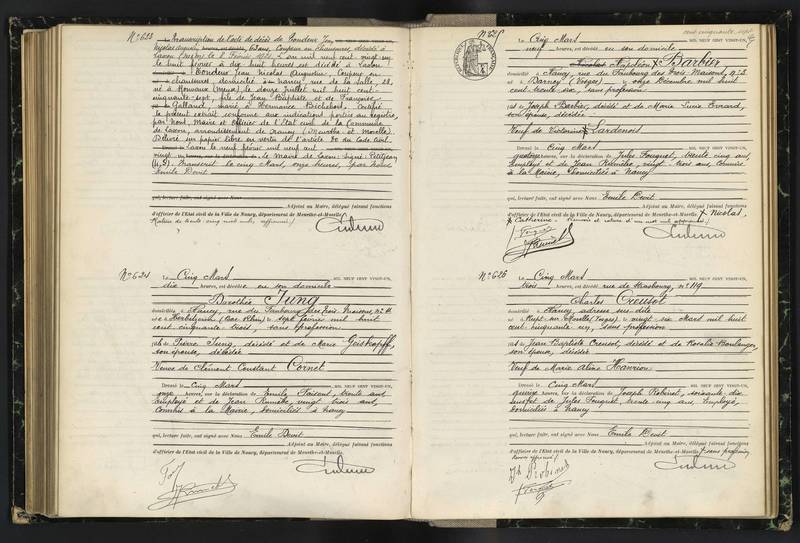 No 623
Transcription de l'acte de décès de Toudeur Jean
Nicolas Augustin, 63 ans, Coupeur en chaussures, décédé à
Laxou le 8 Février 1921. L'an mil neuf cent vingt-un
le huit Février à dix huit heures est décédé à Laxou
Toudeur Jean Nicolas Augustin, Coupeur en
chaussures, domicilié à Nancy rue de la Salle, 28,
né à (Meuse) le douze juillet mil huit cent
cinquante-sept, fils de Jean Baptiste et de Françoise
Galland, marié à Hermance Béchebot. Certifié
le présent extrait conforme aux indications portées au registre,
par nous, Maire et Officier de l'Etat civil de la Commune
de Laxou, arrondissement de Nancy (Meurthe et Moselle).
Délivré sur papier libre en vertu de l'article 80 du Code Civil.
Laxou le neuf Février mil neuf cent
vingt-un. le Maire de Laxou signé: Petitjean
Transcrit le cinq Mars, onze heures, par nous
Emile Devit
qui, lecture faite, ont signé avec Nous
Adjoint au Maire, délégué faisant fonctions
d'officier de l'Etat civil de la Ville de Nancy, département de Meurthe-et-Moselle.
No 624
Le Cinq Mars MIL NEUF CENT VINGT-UN,
dix heures, est décédée en son domicile
Dorothée Jung
domiciliée à Nancy, rue du Faubourg des Trois Maisons, no
née à (Bas Rhin) le sept Février mil huit
cent cinquante trois, sans profession
fille de Pierre Jung, décédé et de Marie Geiskopff,
son épouse, décédée
Veuve de Clément Constant Cornet
Dressé le Cinq Mars MIL NEUF CENT VINGT-UN,
onze heures, sur la déclaration de Emile Poisent, trente ans,
employé et de Jean vingt trois ans,
Commis à la Mairie, domiciliés à Nancy
qui, lecture faite, ont signé avec Nous Emile Devit
Adjoint au Maire, délégué faisant fonctions
d'officier de l'Etat civil de la Ville de Nancy, département de Meurthe-et-Moselle.
cent cinquante sept
No 625
Le Cinq Mars MIL NEUF CENT VINGT-UN,
neuf heures, est décédé en son domicile
Barbier
domicilié à Nancy, rue du Faubourg des Trois Maisons, no 3
né à (Vosges) le onze Décembre mil huit
cent trente six, sans profession
fils de Joseph Barbier, décédé et de Marie Evrard,
son épouse, décédée
Veuf de Victorine Lardenois
Dressé le Cinq Mars MIL NEUF CENT VINGT-UN,
quatorze heures, sur la déclaration de Jules Fouquet, trente cinq ans,
Employé et de Jean vingt trois ans, Commis
à la Mairie, domiciliés à Nancy
qui, lecture faite, ont signé avec Nous Emile Devit
Adjoint au Maire, délégué faisant fonctions
d'officier de l'Etat civil de la Ville de Nancy, département de Meurthe-et-Moselle. x Nicolas,
x Catherine
No 626
Le Cinq Mars MIL NEUF CENT VINGT-UN,
trois heures, est décédé rue de Strasbourg, no 119
Charles Creusot
domicilié à Nancy, adresse sus-dite
né à Rupt sur Moselle (Vosges) le vingt six Mars mil huit
cent cinquante un, sans profession
fils de Jean Baptiste Creusot, décédé et de Rosalie Boulanger,
son épouse, décédée
Veuf de Marie Aline Hanrion
Dressé le Cinq Mars MIL NEUF CENT VINGT-UN,
quinze heures, sur la déclaration de Joseph Robinet, soixante-dix
et de Jules Fouquet, trente-cinq ans, Employé,
domiciliés à Nancy
qui, lecture faite, ont signé avec Nous Emile Devit
Adjoint au Maire, délégué faisant fonctions
d'officier de l'Etat civil de la Ville de Nancy, département de Meurthe-et-Moselle. sans profession,